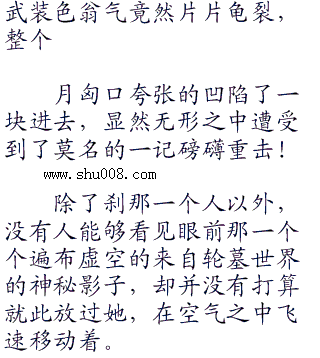 武装色翁气竟然片片龟裂，
整个
月匈口夸张的凹陷了一
块进去，显然无形之中遭受
到了莫名的一记磅礴重击！
www.shu008.com
除了刹那一个人以外，
没有人能够看见眼前那一个
个遍布虚空的来自轮墓世界
的神秘影子，却并没有打算
就此放过她，在空气之中飞
速移动着。